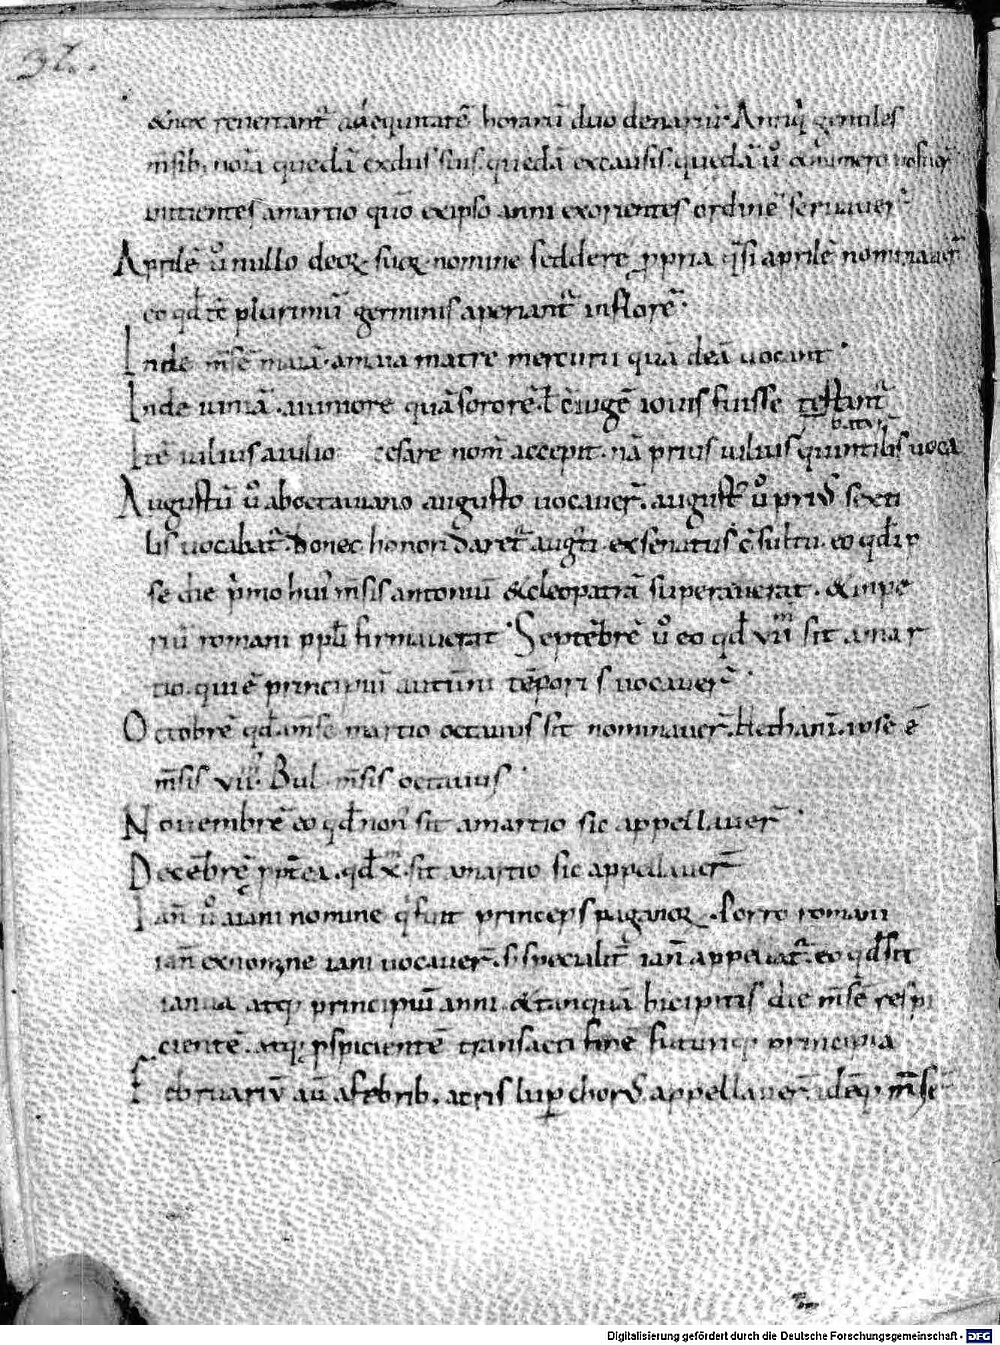 92.
& nox reuertant᷑ ad ęquitatē horarū duo denariū. Antiq̇ gentiles
m̄sib; noīa quedā ex dus suis. quedā ex causis. quedā ů ex numero
uitientes a martio quō ex ipso anni exorientes ordinē seruauer᷑
Aprilē ů nullo deoꝝ suoꝝ nomine sed de re ꝓpria q̄si aprilē nominauer᷑
eo qd̄ tc̄ plurimū germinis aperiant᷑ in florē.
Inde m̄sē maiā. a maia matre mercurii quā deā uocant.
Inde uiniā. a iunione quā sororē ł c̄iugē iouis fuisse testant᷑
Itē iulius a iulio cesare nom̄ accepit. nā prius iulius quintilis uoca
bat᷑
Augustū ů ab octauiano augusto uocauer᷑. august᷑ ů pri᷒ sexti
lis uocabat᷑. donec honori daret᷑ auḡti. ex senatus c̄sultu. eo qd̄ ip
se die p̄mo hui᷒ m̄sis antoniū & cleopatrā superauerat. & inpe
riū romani ppl̄i firmauerat. Septēbrē ů eo qd̄ vii sit a mar
tio. qui ē principiū autūni tēporis uocauer᷑.
Octobrē qd̄ a m̄se martio octauus sit nominauer᷑. Ipse ē
m̄sis vii. Bul m̄sis octauus.
Nouembrē eo qd̄ non᷒ sit a martio sic appellauer᷑.
Decēbrē ꝓpt̄ea. qd̄ x. sit a martio sic appellauer᷑
Ian̄ ů a iani nomine q̇ fuit princeps paganoꝝ. Porro romani
ian̄ ex nomine iani uocauer᷑. s; specialit᷑ ian̄ appellat᷑. eo qd̄ sit
ianua atq; principiū anni. & tanquā bicipitis die m̄sē respi
cientē. atq; ꝓspicientē transacti finē futuriq; principia
Februariū aū a februb; acris lupchor᷒ appellauer᷑ idēq; m̄sē
Digitalisierung gefördert durch die Deutsche Forschungsgemeinschaft - DFG